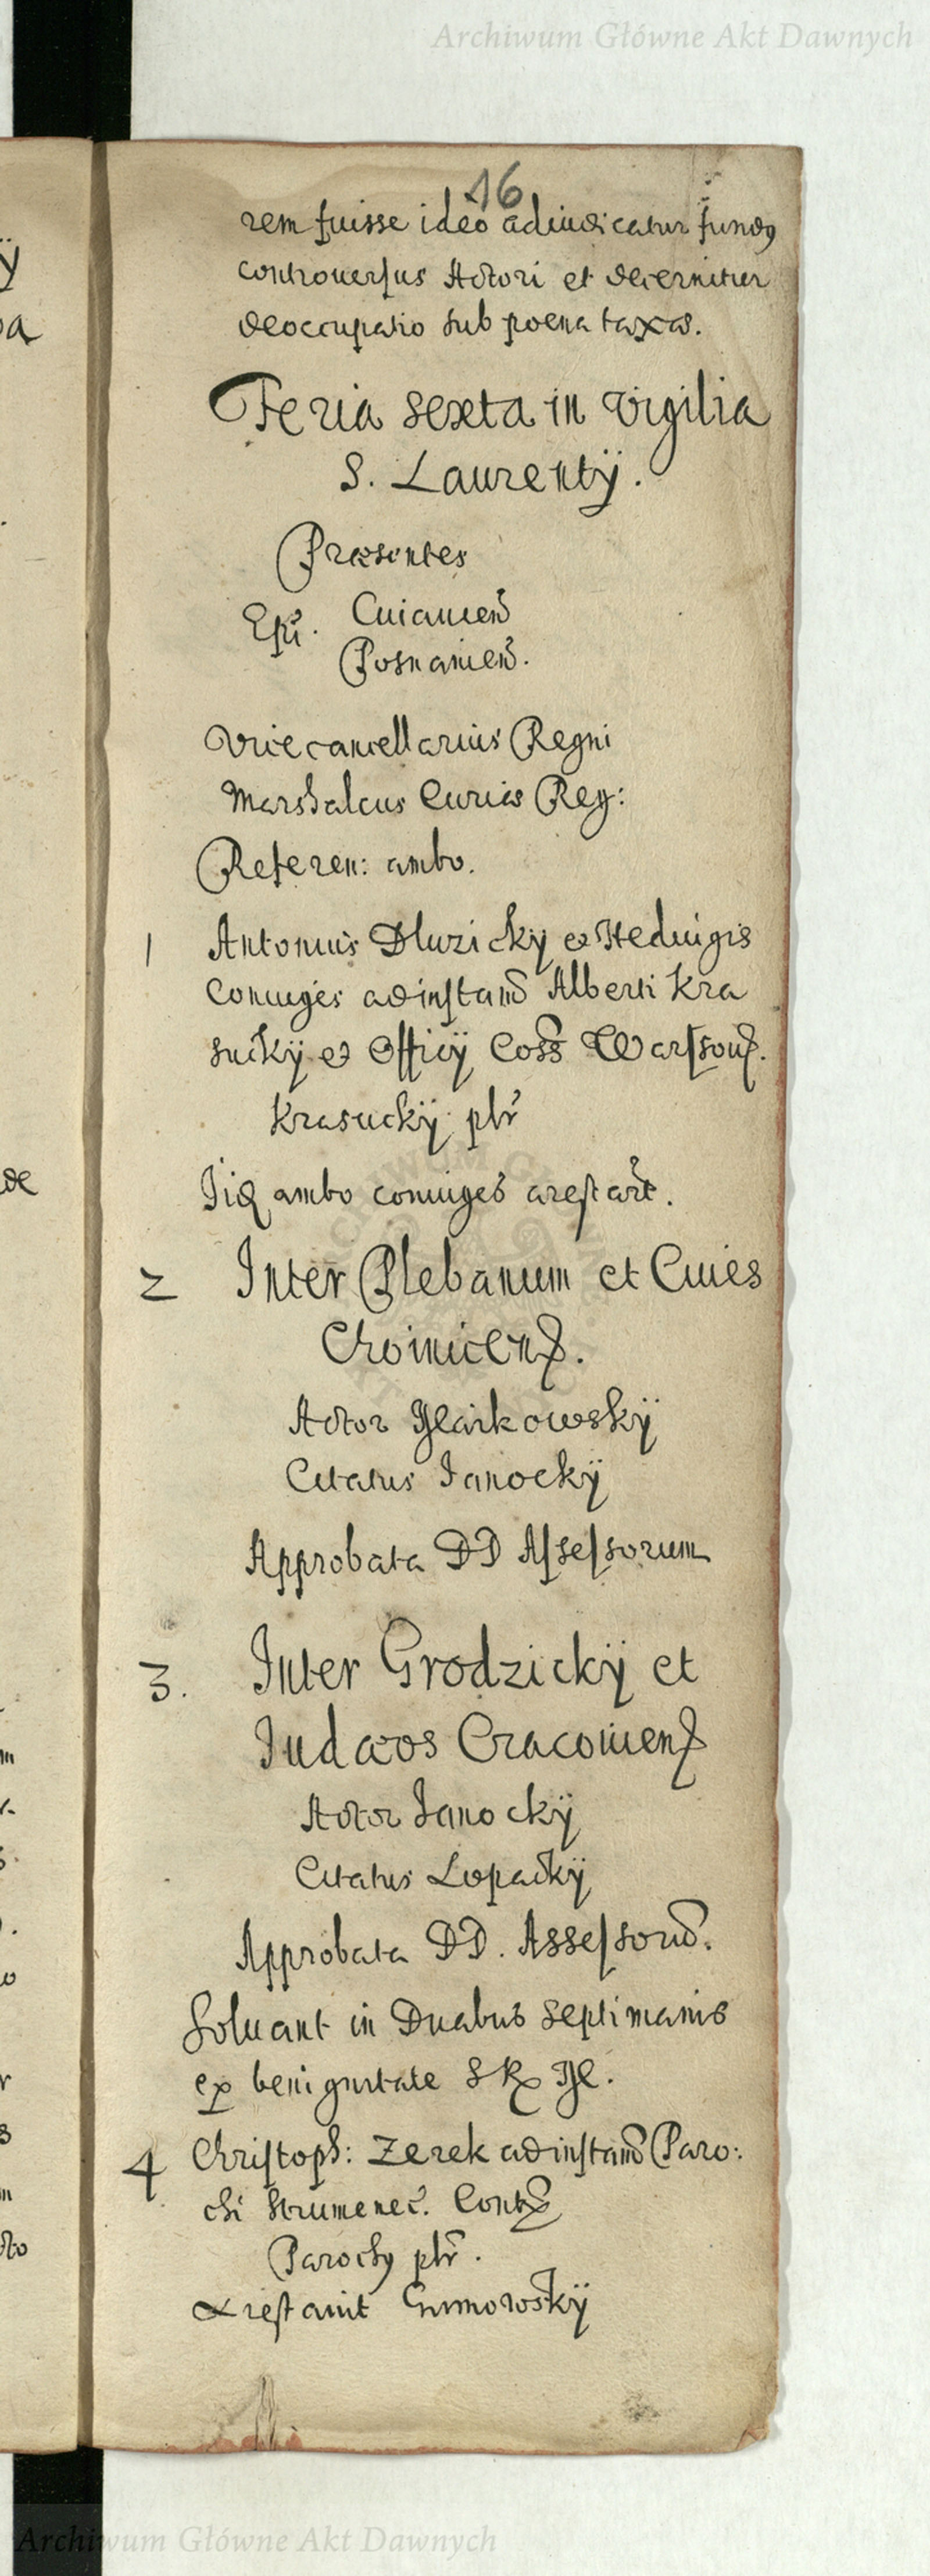 Archiwum Główne Akt Dawnych
16
rem fuisse ideo adiudicatur fundus
controuersus Actori et decernitur
deoccupatio sub poena taxae.
Feria sexta in Vigilia
S. Laurentÿ.
Præsentes
Epi. Cuiauien
Posnanien.
Vicecancellarius Regni
Marshalcus Curiæ Reg:
Referen: ambo.
1 Antonius Dluzickÿ et Heduigis
Coniuges ad instan Alberti Kra
suckÿ et Officÿ Coss Warssou.
Krasuckÿ ptr
Iidem ambo coniuges arestart.
2 Inter Plebanum et Ciues
Choinicens.
Actor
Citatus Ianockÿ
Approbata DD Assessorum
3. Inter Grodzickÿ et
Iudæos Cracouiens
Actor Ianockÿ
Citatus Lopackÿ
Approbata DD. Assessorum.
Soluant in Duabus septimanis
ex benignitate S R M.
4 Christoph: Zerek ad instan Paro:
chi Strumenec. Contra
Parochus ptr.
Arestauit Gumowskÿ
Archiwum Główne Akt Dawnych